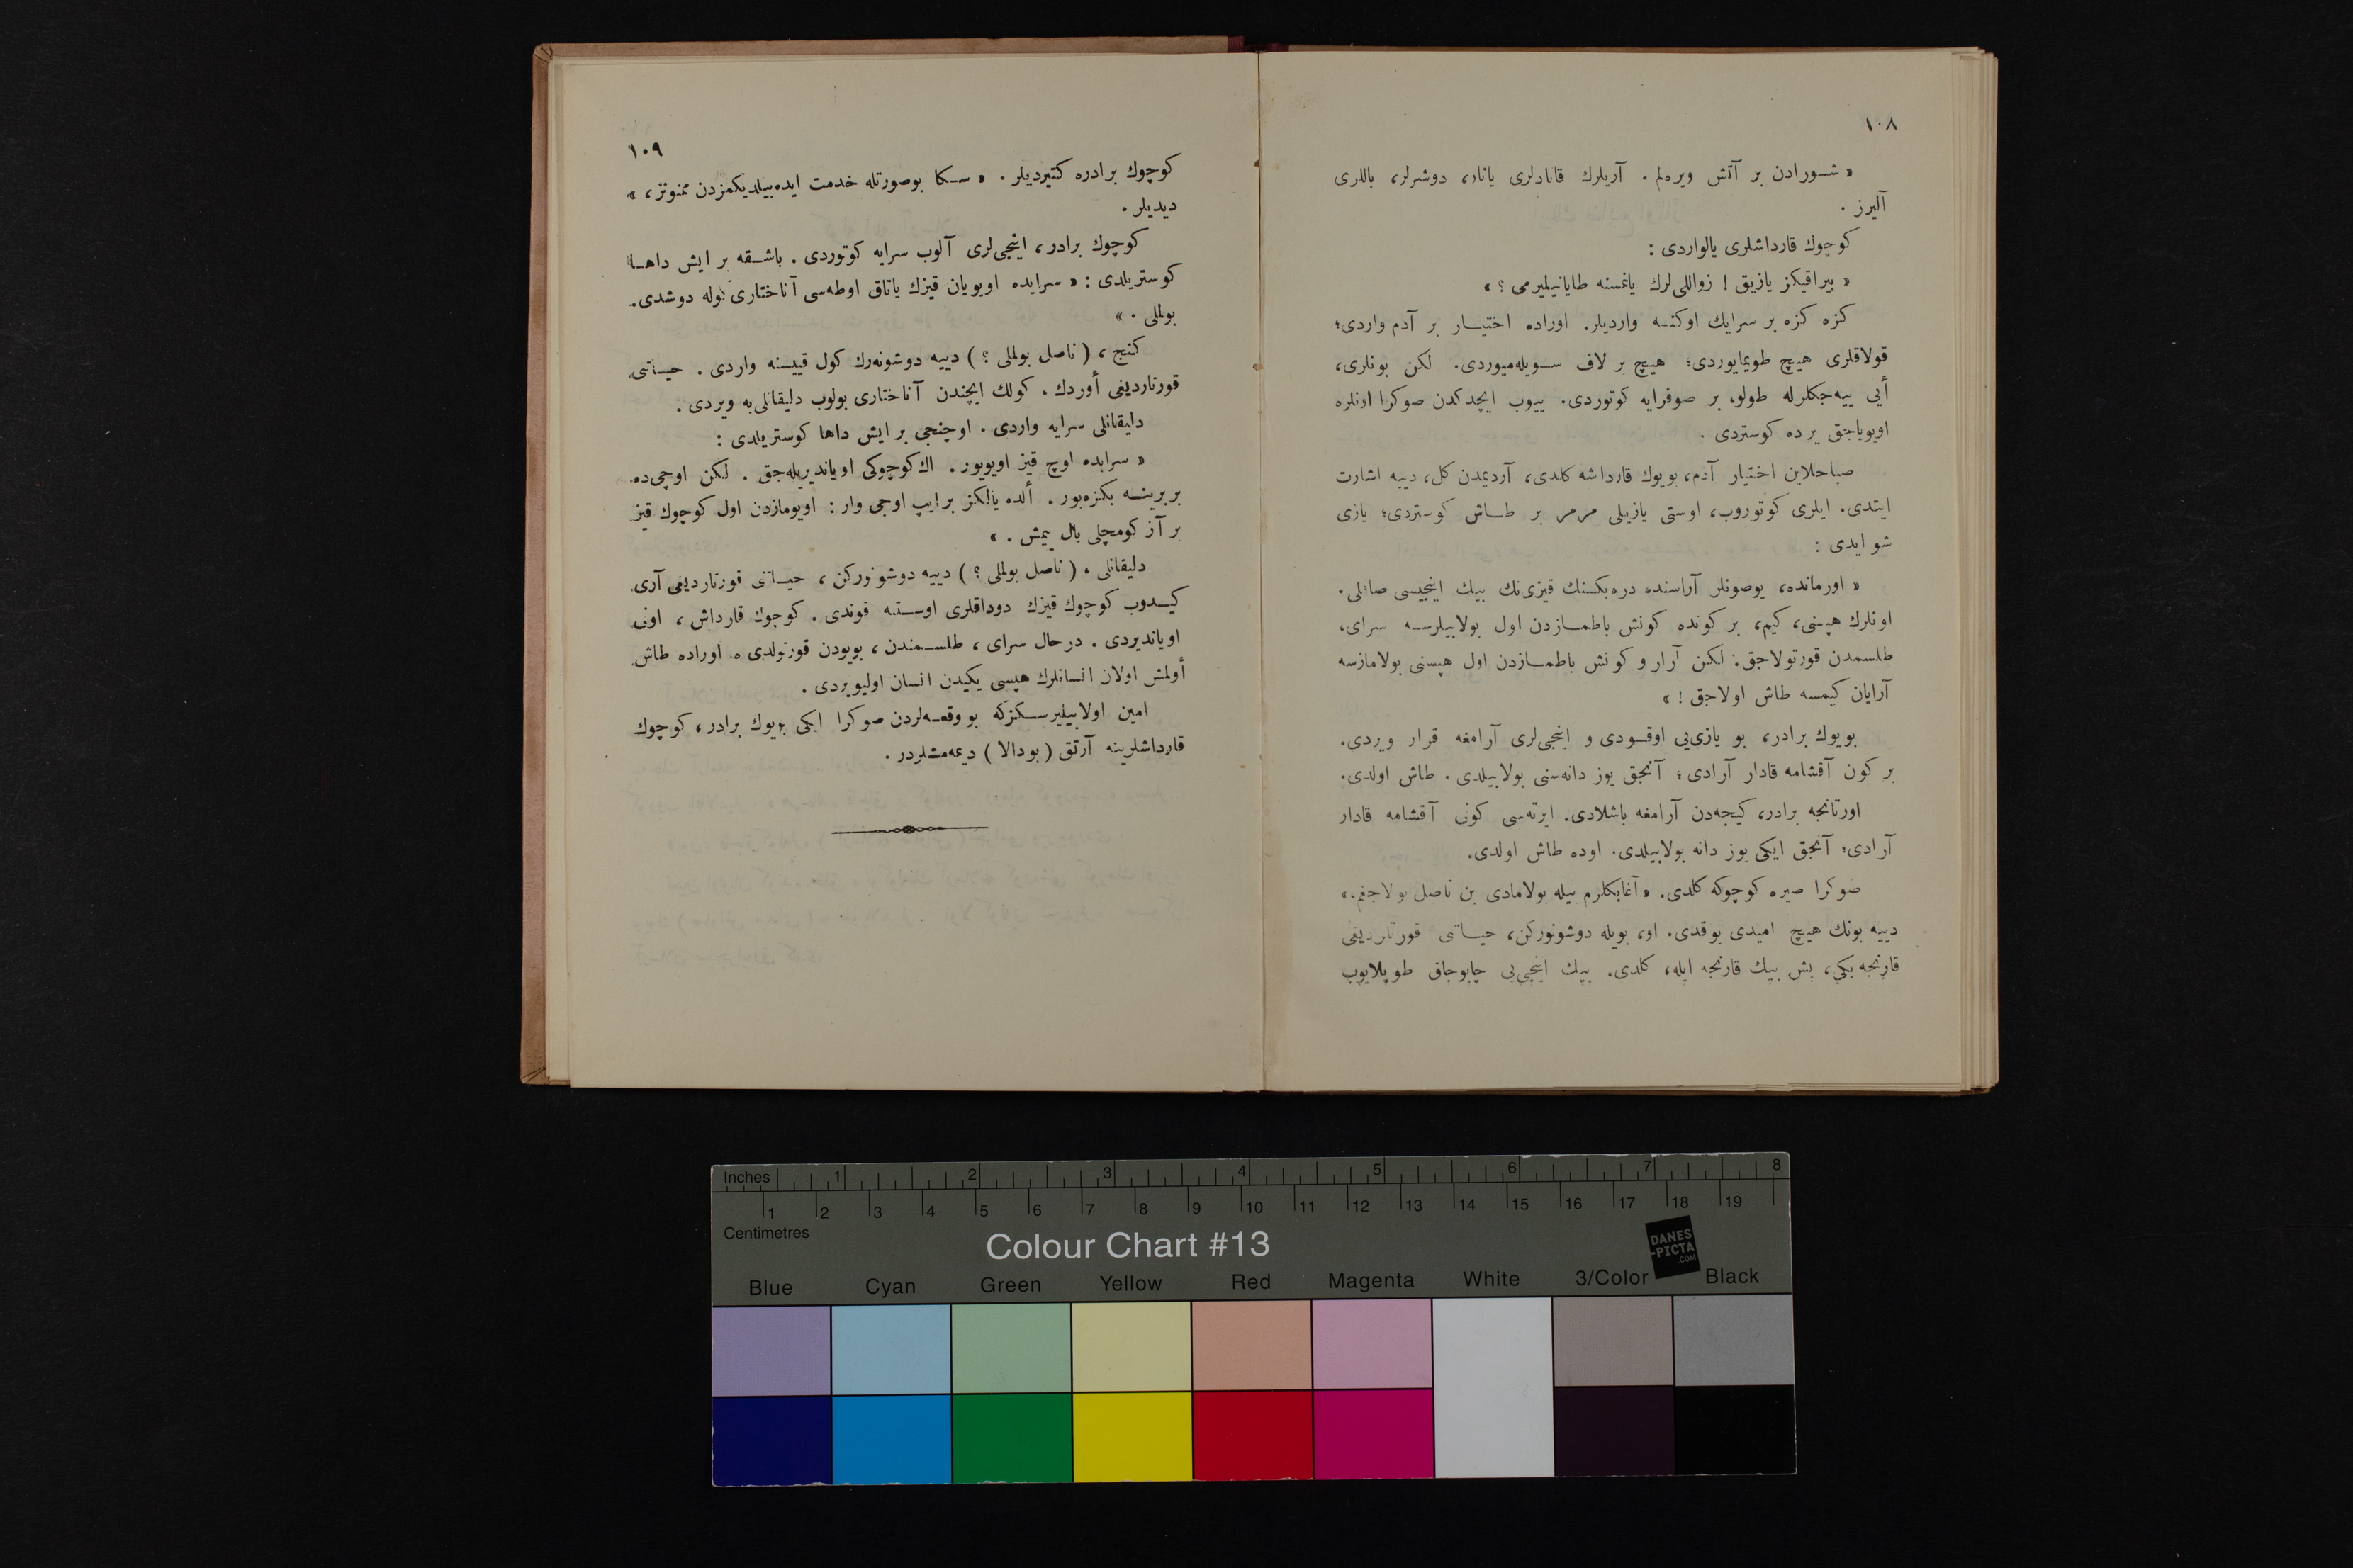 ١٠٨
« شورادن بر آتش ويره‌لم . آريلرك قانادلرى يانار، دوشرلر، باللرى
آليرز .
كوچوك قارداشلرى يالواردى :
« بيراقيكز يازيق ! زواللى‌لرك يانمسنه طايانيليرمى ؟ »
كزه كزه بر سرايك اوكنه وارديلر. اوراده اختيار بر آدم واردى؛
قولاقلرى هيچ طويمايوردى؛ هيچ بر لاف سويله‌ميوردى. لكن بونلرى،
أيى ييه‌جكلرله طولو، بر صوفرايه كوتوردى. ييوب ايچدكدن صوكرا اونلره
اويوياجق يرده كوستردى .
صباحلاين اختيار آدم، بويوك قارداشه كلدى، آرديمدن كل، دييه اشارت
ايتدى. ايلرى كوتوروب، اوستى يازيلى مرمر بر طاش كوستردى؛ يازى
شو ايدى :
« اورمانده، يوصونلر آراسنده دره‌بكنك قيزى‌نك بيك اينجيسى صاقلى.
اونلرك هپسنى، كيم، بر كونده كونش باطمازدن اول بولابيلرسه سراى،
طلسمدن قورتولاجق. لكن آرار و كونش باطمازدن اول هپسنى بولامازسه
آرايان كيمسه طاش اولاجق ! »
بويوك برادر، بو يازى‌يى اوقودى و اينجى‌لرى آرامغه قرار ويردى.
بر كون آقشامه قادار آرادى؛ آنجق يوز دانه‌سنى بولابيلدى. طاش اولدى.
اورتانجه برادر، كيجه‌دن آرامغه باشلادى. ايرته‌سى كون آقشامه قادار
آرادى؛ آنجق ايكى يوز دانه بولابيلدى. اوده طاش اولدى.
صوكرا صيره كوچوكه كلدى. « آغابكلرم بيله بولامادى بن ناصل بولاجغم. »
دييه بونك هيچ اميدى يوقدى. او، بويله دوشونوركن، حياتنى قورتارديغى
قارنجه بكى، بش بيك قارنجه ايله، كلدى. بيك اينجى‌يى چابوجاق طوپلايوب
١٠٩
كوچوك برادره كتيرديلر . « سكا بوصورتله خدمت ايده‌بيلديكمزدن ممنونز، »
ديديلر .
كوچوك برادر، اينجى‌لرى آلوب سرايه كوتوردى . باشقه بر ايش داها
كوستريلدى : « سرايده اويويان قيزك ياتاق اوطه‌سى آناختارى كوله دوشدى.
بولملى . »
كنج ، ( ناصل بولملى ؟ ) دييه دوشونه‌رك كول قيينه واردى . حياتنى
قورتارديغى أوردك ، كولك ايچندن آناختارى بولوب دليقانلى‌يه ويردى .
دليقانلى سرايه واردى . اوچنجى بر ايش داها كوستريلدى :
« سرايده اوچ قيز اويويور . اك كوچوكى اويانديريله‌جق . لكن اوچى‌ده
بربرينه بكزه‌يور . ألده يالكز بر ايپ اوجى وار : اويومازدن اول كوچوك قيز
بر آز كومچلى بال ييمش . »
دليقانلى ، ( ناصل بولملى ؟ ) دييه دوشونوركن ، حياتنى قورتارديغى آرى
كيدوب كوچوك قيزك دوداقلرى اوستنه قوندى . كوچوك قارداش ، اونى
اويانديردى . درحال سراى ، طلسمندن ، بويودن قورتولدى . اوراده طاش
أولمش اولان انسانلرك هپسى يكيدن انسان اوليويردى .
امين اولابيليرسكزكه بو وقعه‌لردن صوكرا ايكى بويوك برادر، كوچوك
قارداشلرينه آرتق ( بودالا ) ديمه‌مشلردر .
Inches 1 2 3 4 5 6 7 8
1 2 3 4 5 6 7 8 9 10 11 12 13 14 15 16 17 18 19
Centimetres
Colour Chart #13
DANES
-PICTA
.COM
Blue Cyan Green Yellow Red Magenta White 3/Color Black